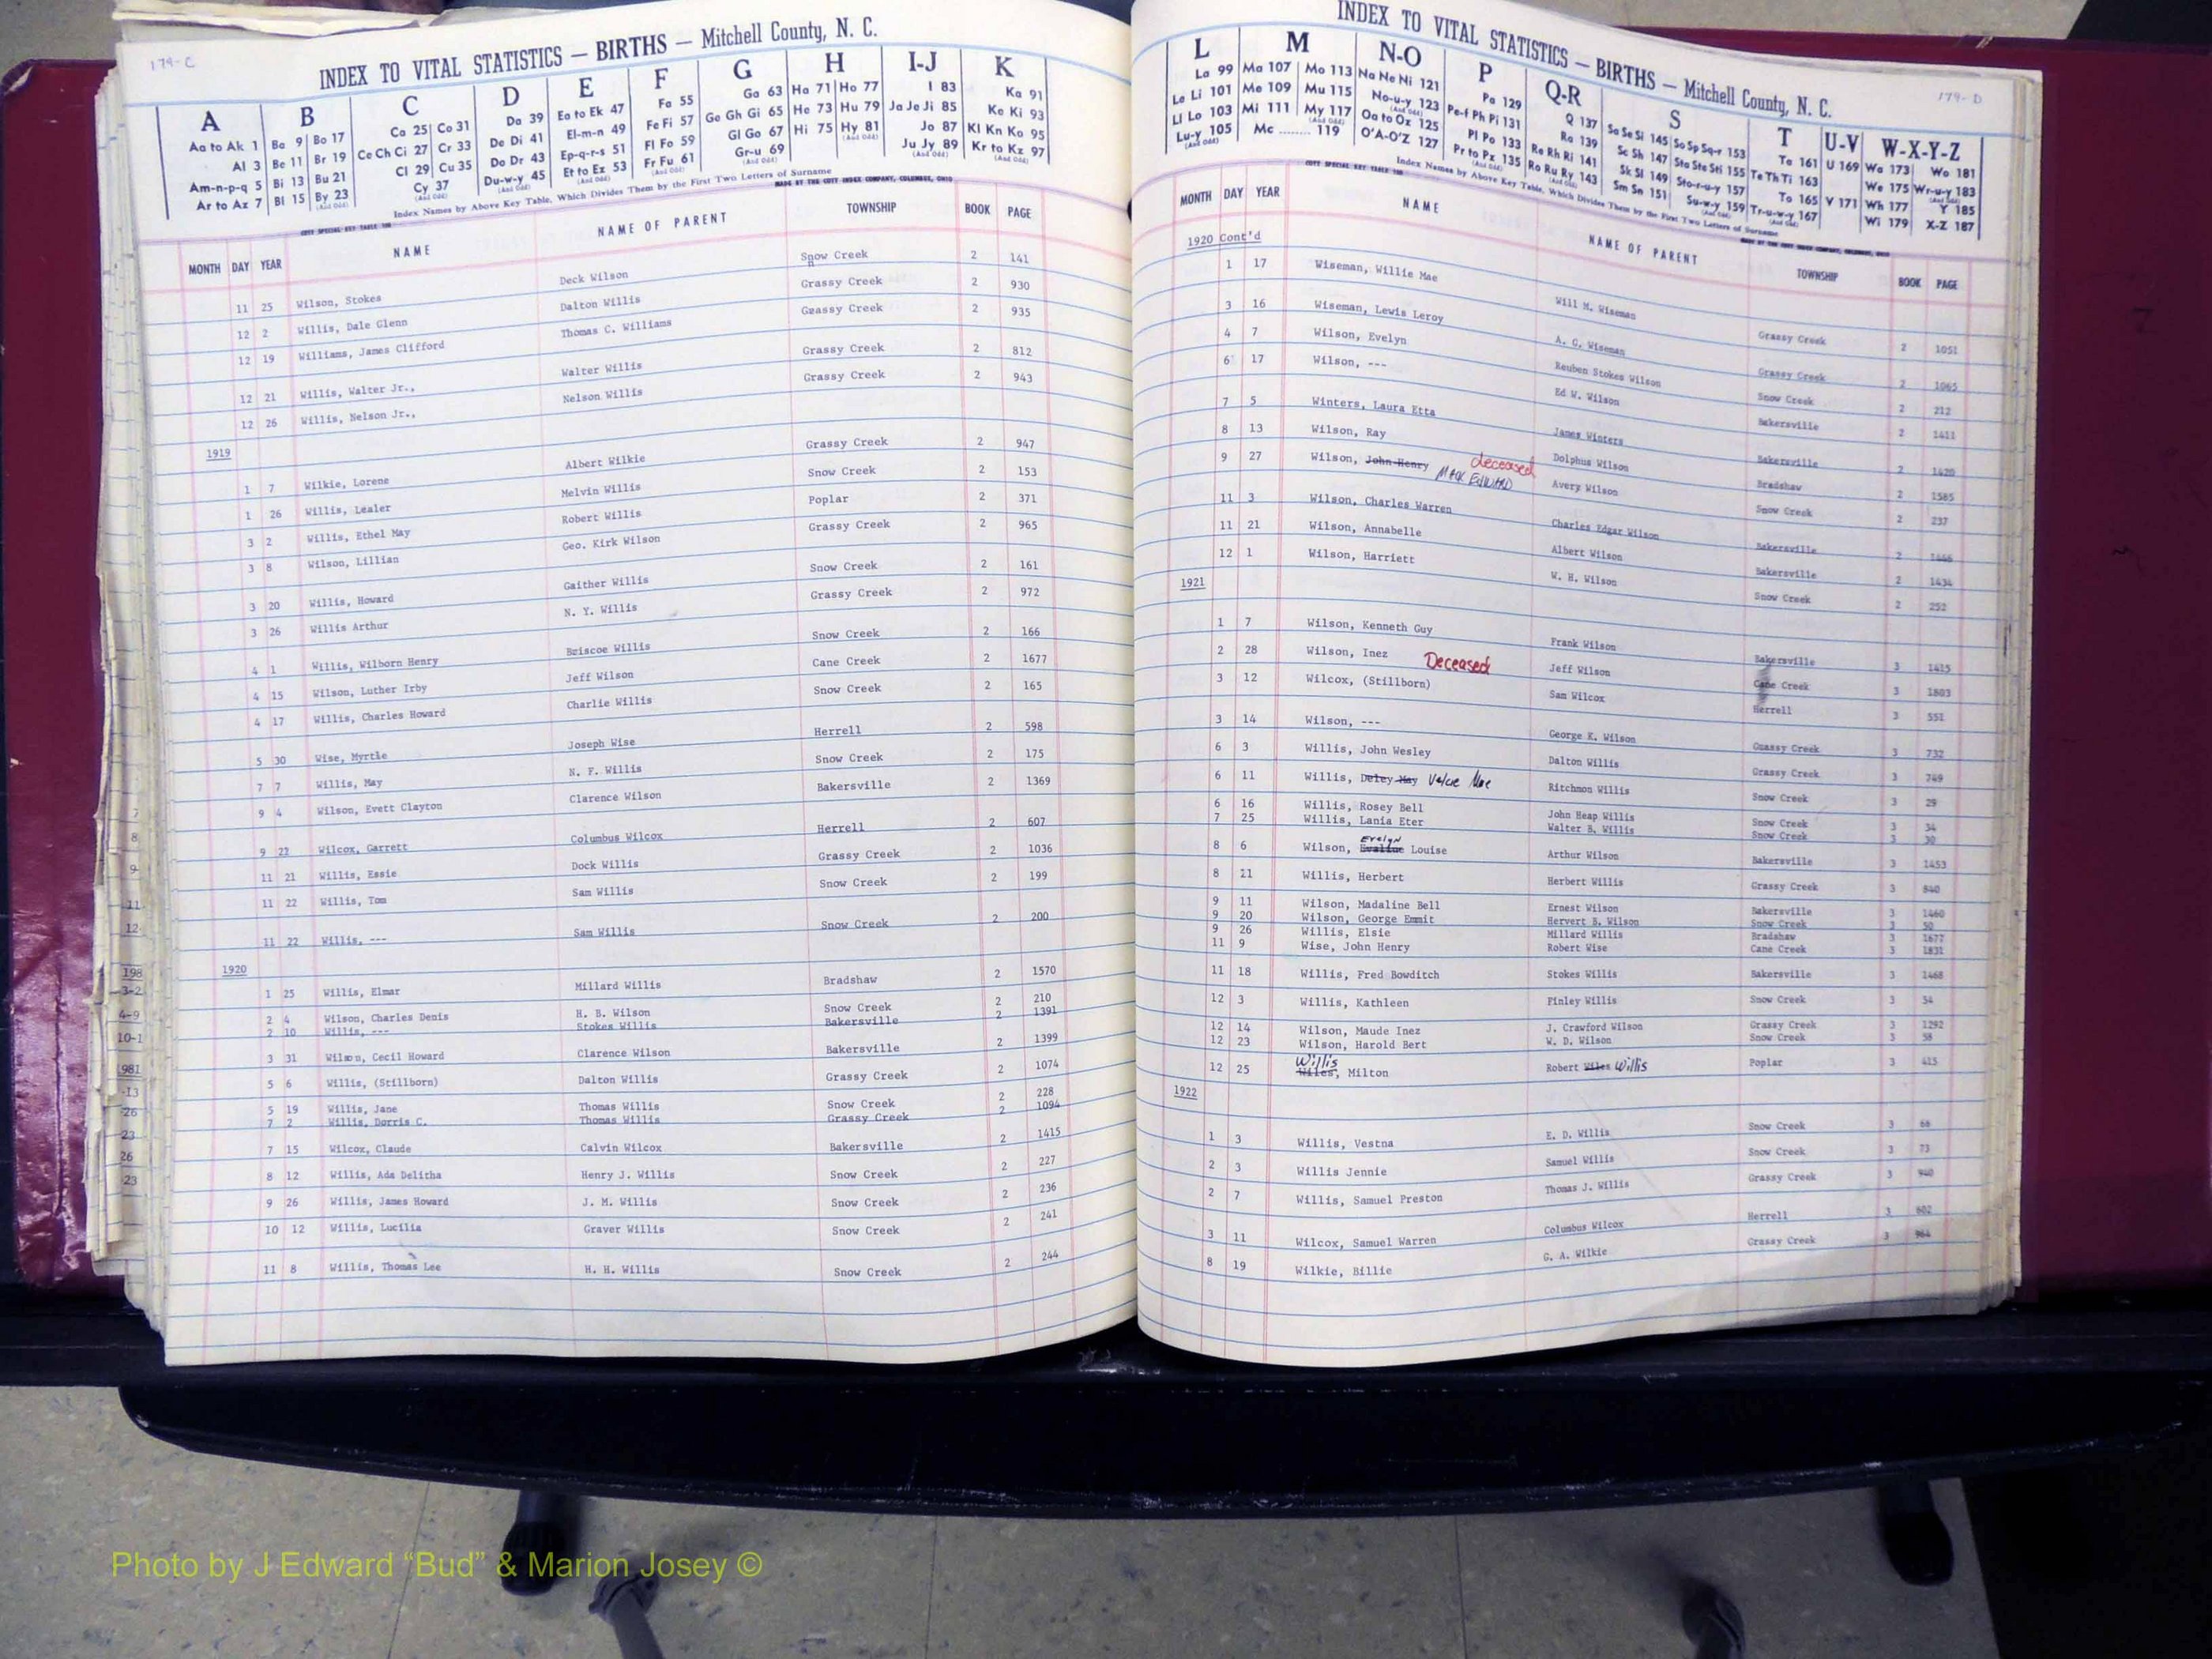 179-C
INDEX TO VITAL STATISTICS — BIRTHS — Mitchell County, N. C.
A B C D E F G H I-J K
Aa to Ak 1 Ba 9 Bo 17 Ca 25 Co 31 Da 39 Ea to Ek 47 Fa 55 Ga 63 Ha 71 Ho 77 I 83 Ka 91
Al 3 Be 11 Br 19 Ce Ch Ci 27 Cr 33 De Di 41 El-m-n 49 Fe Fi 57 Ge Gh Gi 65 He 73 Hu 79 Ja Je Ji 85 Ke Ki 93
Am-n-p-q 5 Bi 13 Bu 21 Cl 29 Cu 35 Do Dr 43 Ep-q-r-s 51 Fl Fo 59 Gl Go 67 Hi 75 Hy 81 Jo 87 Kl Kn Ko 95
Ar to Az 7 Bl 15 By 23 Cy 37 Du-w-y 45 Et to Ez 53 Fr Fu 61 Gr-u 69 Ju Jy 89 Kr to Kz 97
Index Names by Above Key Table, Which Divides Them by the First Two Letters of Surname
MADE BY THE COTT INDEX COMPANY, COLUMBUS, OHIO
MONTH DAY YEAR NAME NAME OF PARENT TOWNSHIP BOOK PAGE
11 25 Wilson, Stokes Deck Wilson Snow Creek 2 141
12 2 Willis, Dale Glenn Dalton Willis Grassy Creek 2 930
12 19 Williams, James Clifford Thomas C. Williams Grassy Creek 2 935
12 21 Willis, Walter Jr., Walter Willis Grassy Creek 2 812
12 26 Willis, Nelson Jr., Nelson Willis Grassy Creek 2 943
1919
1 7 Wilkie, Lorene Albert Wilkie Grassy Creek 2 947
1 26 Willis, Lealer Melvin Willis Snow Creek 2 153
3 2 Willis, Ethel May Robert Willis Poplar 2 371
3 8 Wilson, Lillian Geo. Kirk Wilson Grassy Creek 2 965
3 20 Willis, Howard Gaither Willis Snow Creek 2 161
3 26 Willis Arthur N. Y. Willis Grassy Creek 2 972
4 1 Willis, Wilborn Henry Briscoe Willis Snow Creek 2 166
4 15 Wilson, Luther Irby Jeff Wilson Cane Creek 2 1677
4 17 Willis, Charles Howard Charlie Willis Snow Creek 2 165
5 30 Wise, Myrtle Joseph Wise Herrell 2 598
7 7 Willis, May N. F. Willis Snow Creek 2 175
9 4 Wilson, Evett Clayton Clarence Wilson Bakersville 2 1369
9 22 Wilcox, Garrett Columbus Wilcox Herrell 2 607
11 21 Willis, Essie Dock Willis Grassy Creek 2 1036
11 22 Willis, Tom Sam Willis Snow Creek 2 199
11 22 Willis, --- Sam Willis Snow Creek 2 200
1920
1 25 Willis, Elmar Millard Willis Bradshaw 2 1570
2 4 Wilson, Charles Denis H. B. Wilson Snow Creek 2 210
2 10 Willis, --- Stokes Willis Bakersville 2 1391
3 31 Wilson, Cecil Howard Clarence Wilson Bakersville 2 1399
5 6 Willis, (Stillborn) Dalton Willis Grassy Creek 2 1074
5 19 Willis, Jane Thomas Willis Snow Creek 2 228
7 2 Willis, Dorris C. Thomas Willis Grassy Creek 2 1094
7 15 Wilcox, Claude Calvin Wilcox Bakersville 2 1415
8 12 Willis, Ada Delitha Henry J. Willis Snow Creek 2 227
9 26 Willis, James Howard J. M. Willis Snow Creek 2 236
10 12 Willis, Lucilia Graver Willis Snow Creek 2 241
11 8 Willis, Thomas Lee H. H. Willis Snow Creek 2 244
179-D
INDEX TO VITAL STATISTICS — BIRTHS — Mitchell County, N. C.
L M N-O P Q-R S T U-V W-X-Y-Z
La 99 Ma 107 Mo 113 Na Ne Ni 121 Pa 129 Q 137 Sa Se Si 145 So Sp Sq-r 153 Ta 161 U 169 Wa 173 Wo 181
Le Li 101 Me 109 Mu 115 No-u-y 123 Pe-f Ph Pi 131 Ra 139 Sc Sh 147 Sta Ste Sti 155 Te Th Ti 163 We 175 Wr-u-y 183
Ll Lo 103 Mi 111 My 117 Oa to Oz 125 Pl Po 133 Re Rh Ri 141 Sk Sl 149 Sto-r-u-y 157 To 165 V 171 Wh 177 Y 185
Lu-y 105 Mc 119 O'A-O'Z 127 Pr to Pz 135 Ro Ru Ry 143 Sm Sn 151 Su-w-y 159 Tr-u-w-y 167 Wi 179 X-Z 187
Index Names by Above Key Table, Which Divides Them by the First Two Letters of Surname
MONTH DAY YEAR NAME NAME OF PARENT TOWNSHIP BOOK PAGE
1920 Cont'd
1 17 Wiseman, Willie Mae Will M. Wiseman Grassy Creek 2 1051
3 16 Wiseman, Lewis Leroy A. G. Wiseman Grassy Creek 2 1065
4 7 Wilson, Evelyn Reuben Stokes Wilson Snow Creek 2 212
6 17 Wilson, --- Ed W. Wilson Bakersville 2 1411
7 5 Winters, Laura Etta James Winters Bakersville 2 1420
8 13 Wilson, Ray Dolphus Wilson Bradshaw 2 1585
9 27 Wilson, John Henry Mack Edward deceased Avery Wilson Snow Creek 2 237
11 3 Wilson, Charles Warren Charles Edgar Wilson Bakersville 2 1446
11 21 Wilson, Annabelle Albert Wilson Bakersville 2 1434
12 1 Wilson, Harriett W. H. Wilson Snow Creek 2 252
1921
1 7 Wilson, Kenneth Guy Frank Wilson Bakersville 3 1415
2 28 Wilson, Inez Deceased Jeff Wilson Cane Creek 3 1803
3 12 Wilcox, (Stillborn) Sam Wilcox Herrell 3 551
3 14 Wilson, --- George K. Wilson Grassy Creek 3 732
6 3 Willis, John Wesley Dalton Willis Grassy Creek 3 749
6 11 Willis, Detey May Velcie Mae Ritchmon Willis Snow Creek 3 29
6 16 Willis, Rosey Bell John Heap Willis Snow Creek 3 34
7 25 Willis, Lania Eter Walter B. Willis Snow Creek 3 30
8 6 Wilson, Evaline Evelyn Louise Arthur Wilson Bakersville 3 1453
8 21 Willis, Herbert Herbert Willis Grassy Creek 3 840
9 11 Wilson, Madaline Bell Ernest Wilson Bakersville 3 1460
9 20 Wilson, George Emmit Hervert B. Wilson Snow Creek 3 50
9 26 Willis, Elsie Millard Willis Bradshaw 3 1677
11 9 Wise, John Henry Robert Wise Cane Creek 3 1831
11 18 Willis, Fred Bowditch Stokes Willis Bakersville 3 1468
12 3 Willis, Kathleen Finley Willis Snow Creek 3 54
12 14 Wilson, Maude Inez J. Crawford Wilson Grassy Creek 3 1292
12 23 Wilson, Harold Bert W. D. Wilson Snow Creek 3 58
12 25 Wiles Willis, Milton Robert Wiles Willis Poplar 3 415
1922
1 3 Willis, Vestna E. D. Willis Snow Creek 3 66
2 3 Willis Jennie Samuel Willis Snow Creek 3 73
2 7 Willis, Samuel Preston Thomas J. Willis Grassy Creek 3 940
3 11 Wilcox, Samuel Warren Columbus Wilcox Herrell 3 602
8 19 Wilkie, Billie G. A. Wilkie Grassy Creek 3 964
Photo by J Edward “Bud” & Marion Josey ©